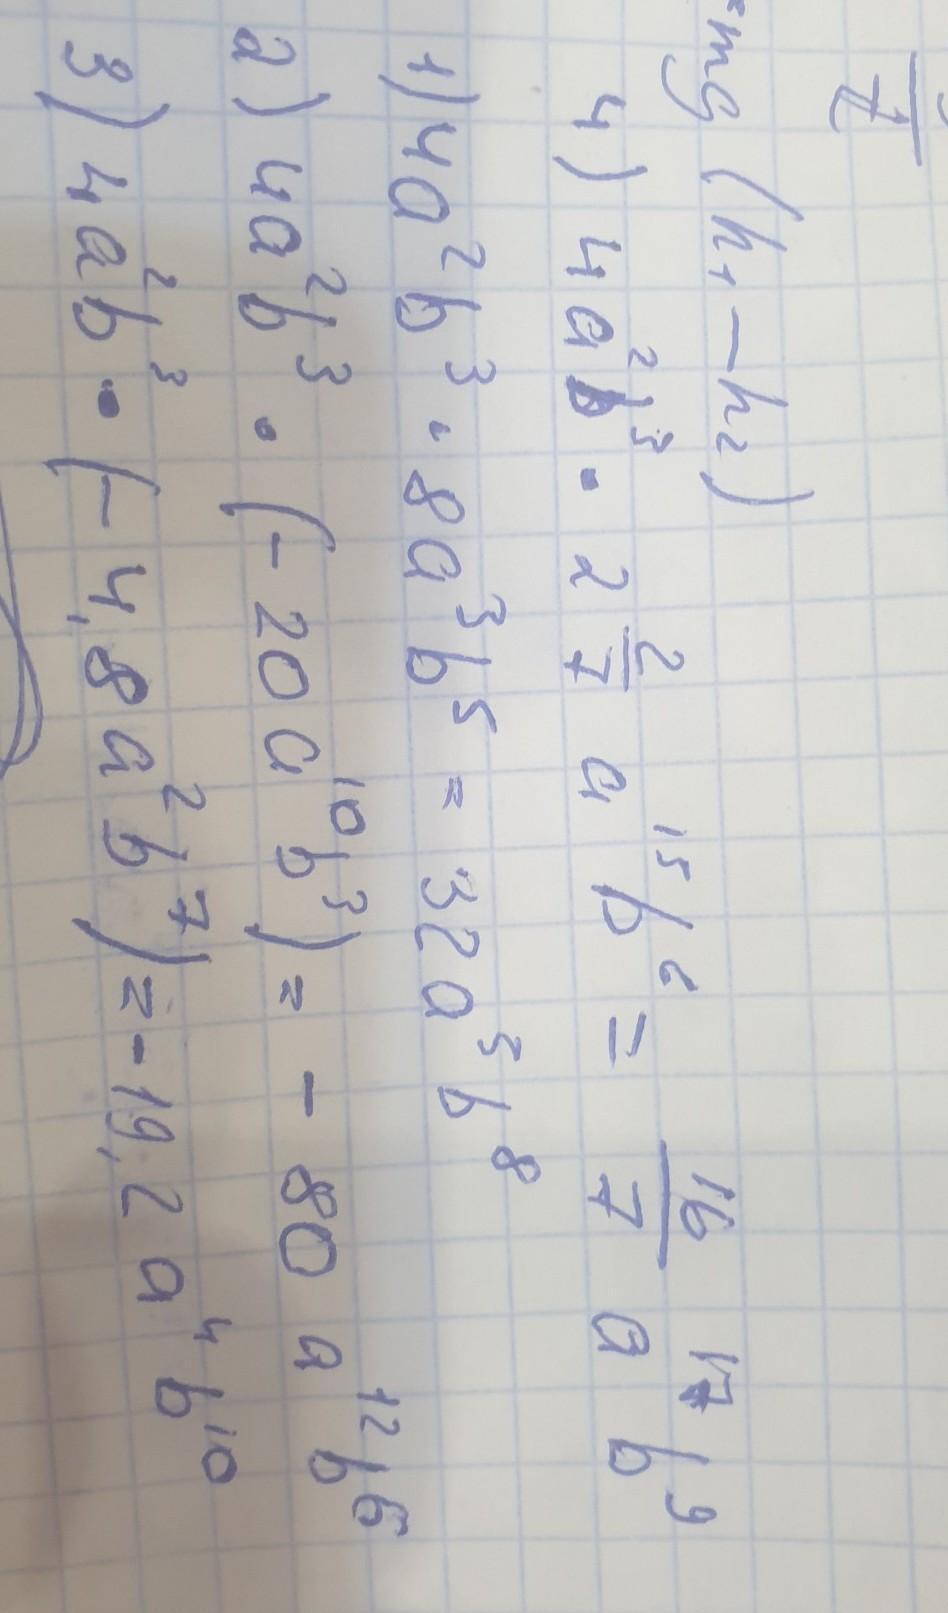 =mg (h₁ - h₂)
4) 4a²b³ · 2 2/7 a¹⁵b⁶ = 16/7 a¹⁷b⁹
1) 4a²b³ · 8a³b⁵ = 32a⁵b⁸
2) 4a²b³ · (-20a¹⁰b³) = - 80a¹²b⁶
3) 4a²b³ · (-4,8a²b⁷) = -19,2a⁴b¹⁰